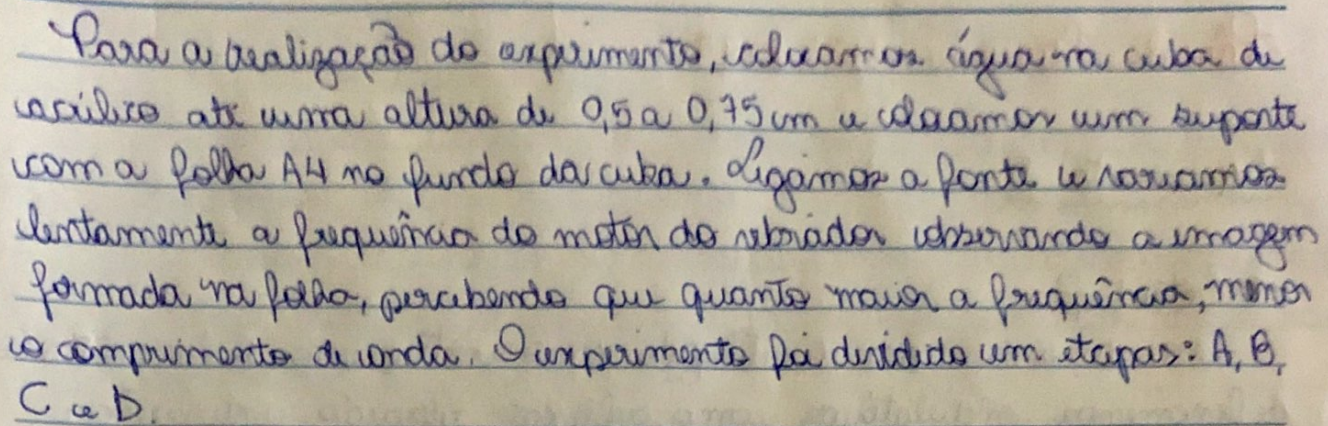 Para a realização do experimento, colocamos água na cuba de
acrílico até uma altura de 0,5 a 0,75 cm e colocamos um suporte
com a folha A4 no fundo da cuba. Ligamos a fonte e variamos
lentamente a frequência do motor do vibrador observando a imagem
formada na folha, percebendo que quanto maior a frequência, menor
o comprimento de onda. O experimento foi dividido em etapas: A, B,
C e D.